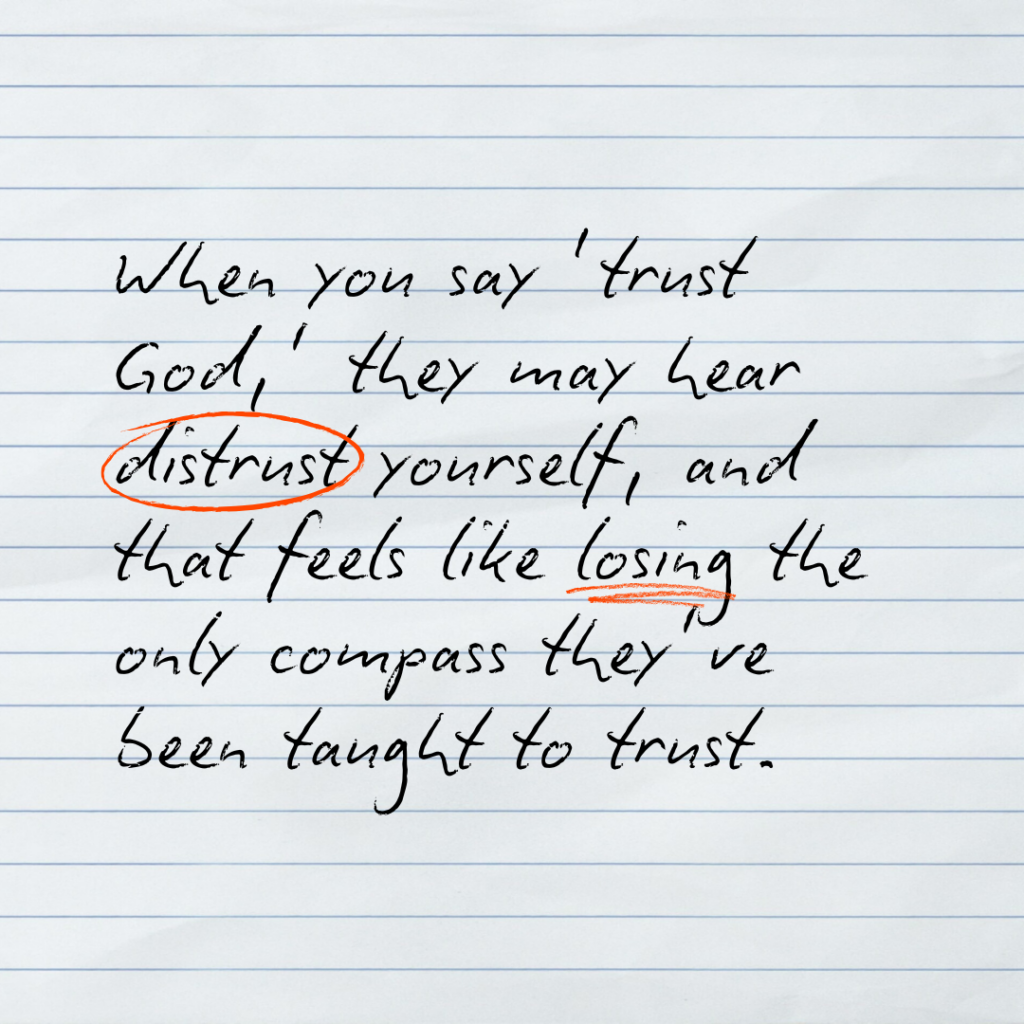 When you say 'trust
God,' they may hear
distrust yourself, and
that feels like losing the
only compass they've
been taught to trust.